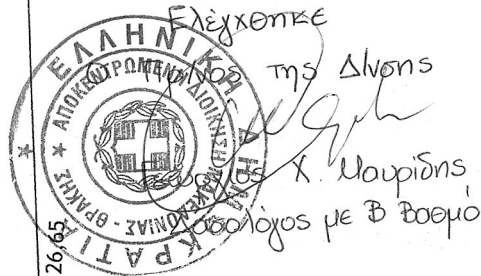 Ελέγχθηκε
της Δ/νσης
Χ. Μαυρίδης
με Β Βαθμό
ΕΛΛΗΝΙΚΗ ΔΗΜΟΚΡΑΤΙΑ
ΑΠΟΚΕΝΤΡΩΜΕΝΗ ΔΙΟΙΚΗΣΗ ΜΑΚΕΔΟΝΙΑΣ - ΘΡΑΚΗΣ
26,65